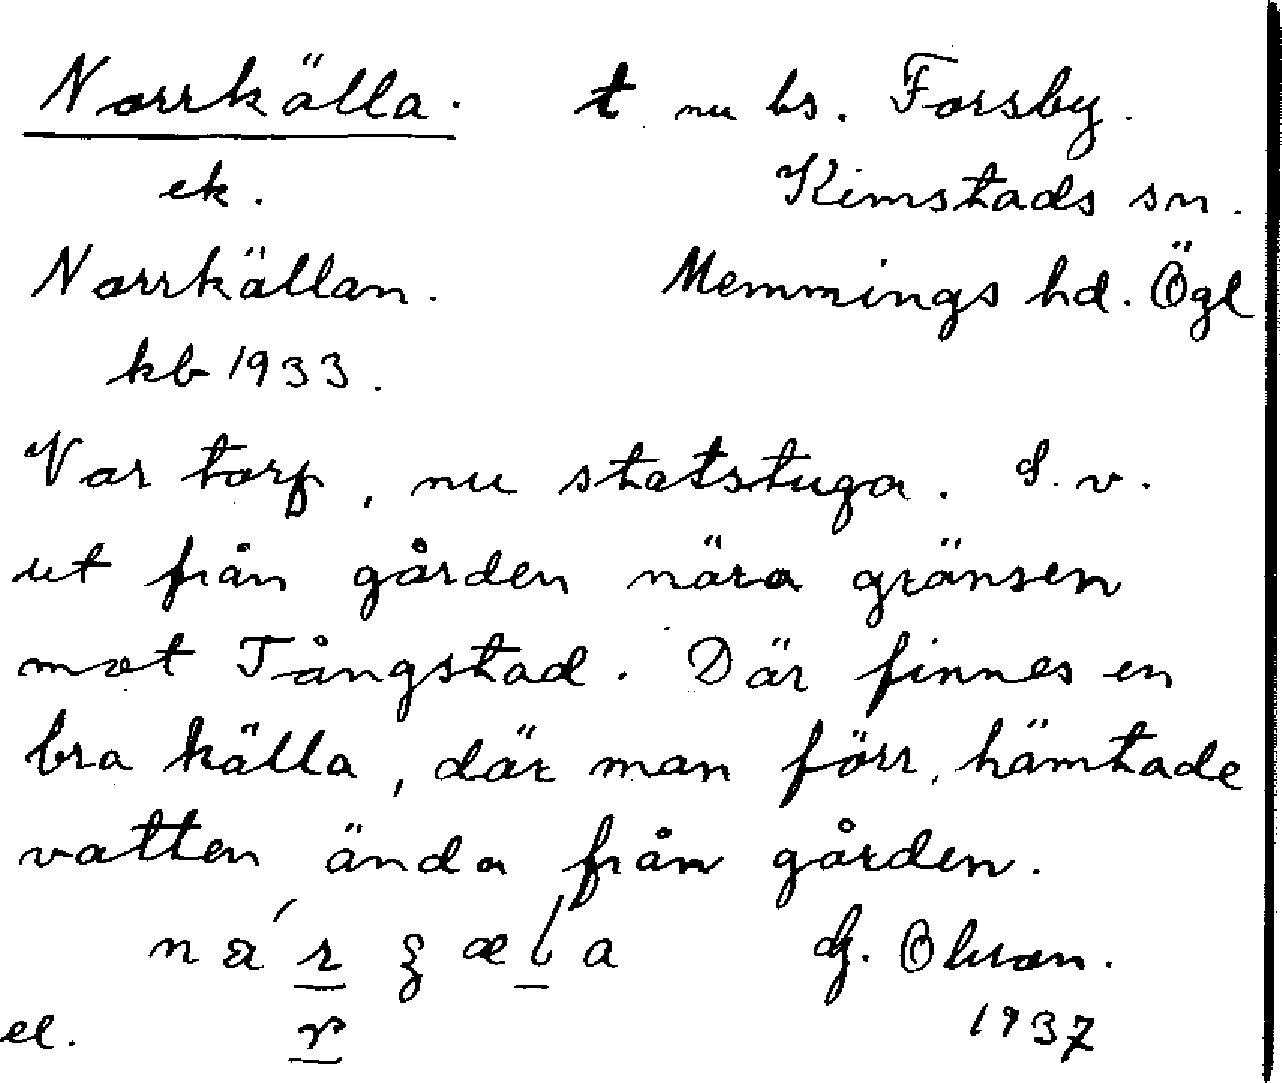 Norrkälla. t nu bs. Forsby.
ek. Kimstads sn.
Norrkällan. Memmings hd. Ögl
kb 1933.
Var torp, nu statstuga. S. v.
ut från gården nära gränsen
mot Tångstad. Där finnes en
bra källa, där man förr hämtade
vatten ända från gården.
1937
el. r